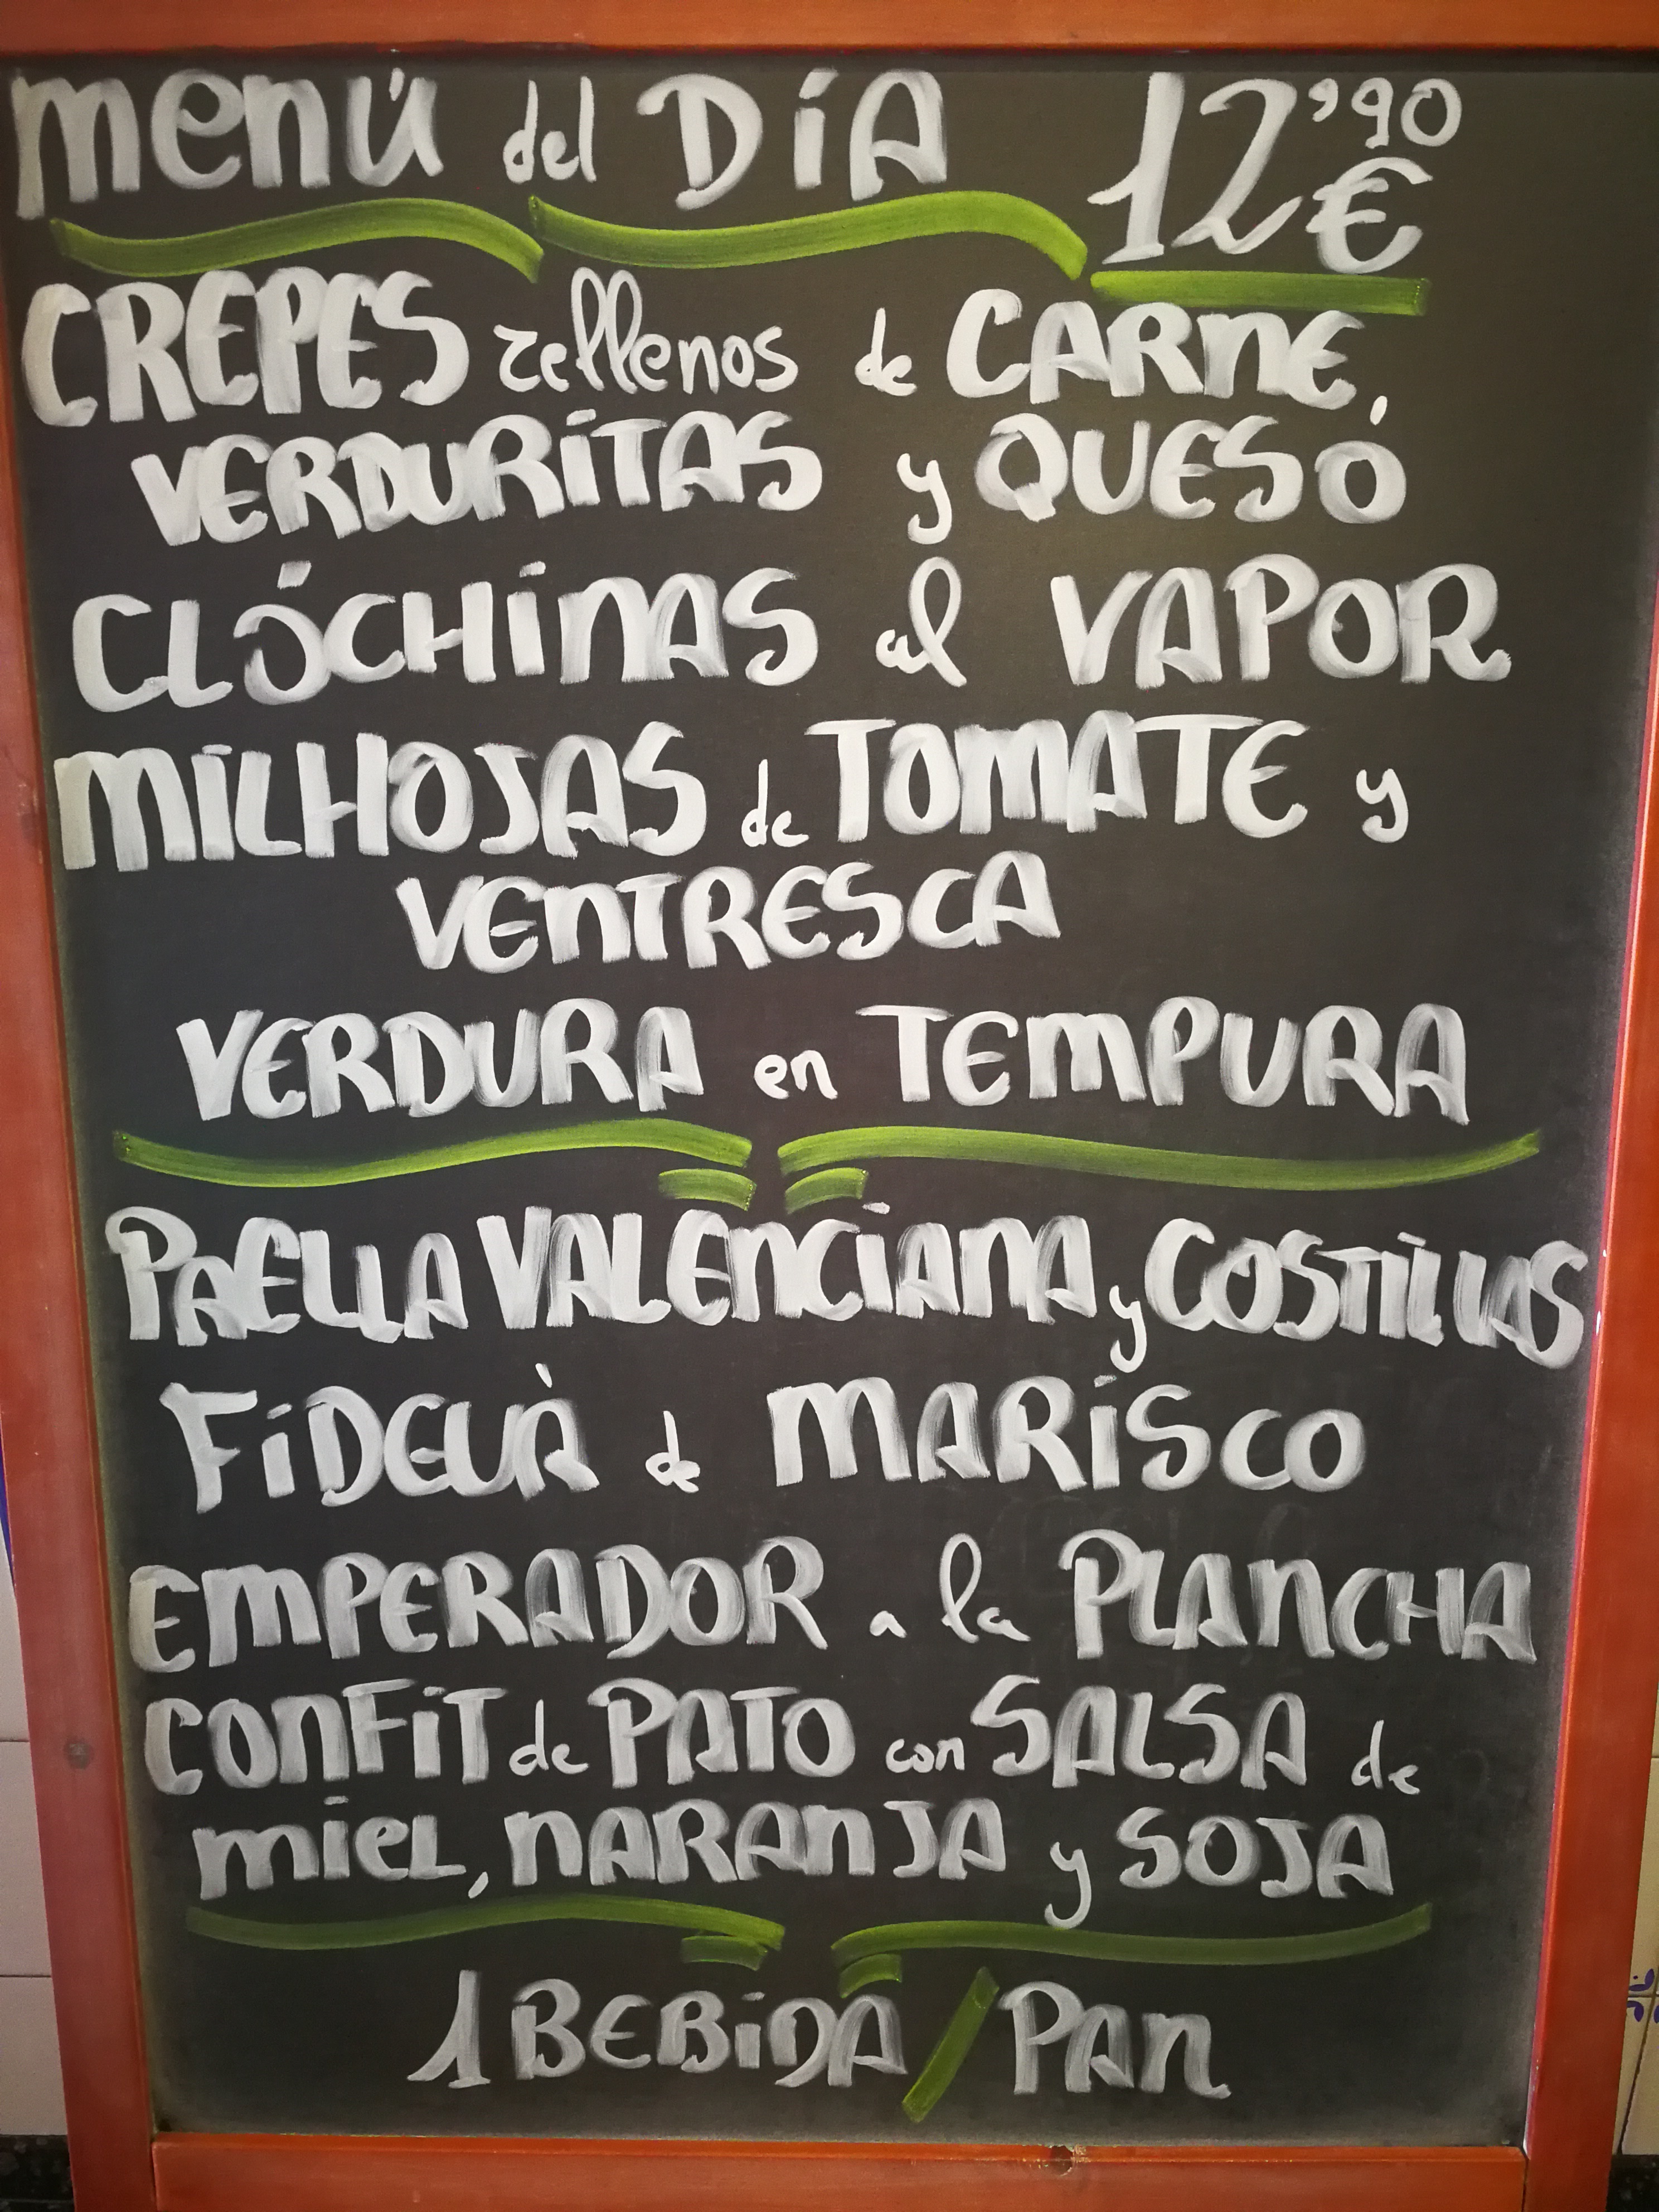 menú del DíA 12'90 €
CREPES rellenos de CARnE,
VERDURiTAS y QUESO
CLÓCHinAS al VAPOR
MiLHOJAS de TOMATE y
VEnTRESCA
VERDURA en TEMPURA
PAELLA VALEnCiAnA y COSTiLLAS
FiDEUÀ de MARiSCO
EMPERADOR a la PLAnCHA
COnFiT de PATO con SALSA de
miEL, nARAnJA y SOJA
1 BEBiDA / PAn